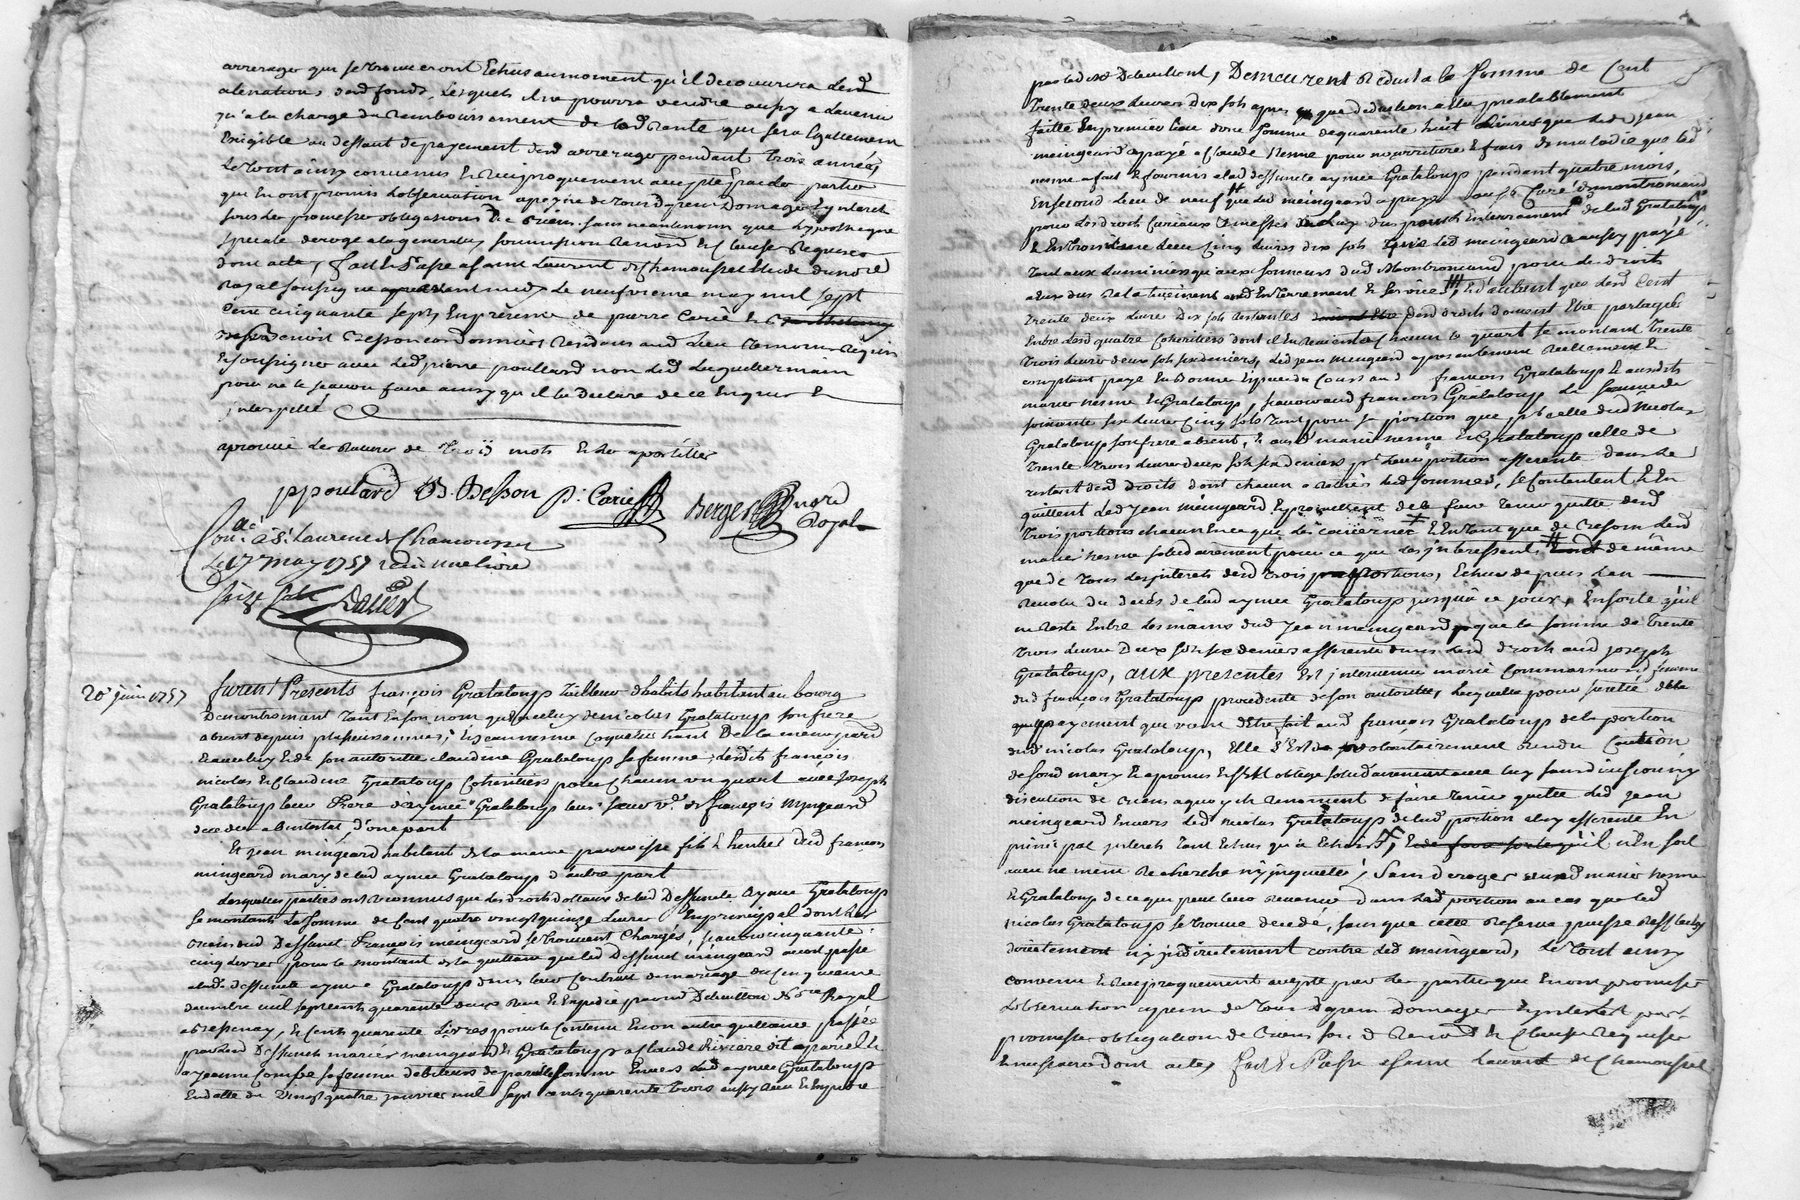 arrerages qui se trouveront Echus au moment qu'il decouvrira lesd
alienations desd fonds, Lesquels il ne pourra vendre aussy a lavenir
qu'a la charge du Remboursement de lad Rente qui sera Egallement
Exigible au deffaut de payement desd arrerages pendant trois années
Le tout ainsy convenu et reciproquement accepté par les parties
qui en ont promis lobservation a peyne de tous depens Domages Interets
sous les promesses obligations de Biens sans neantmoins que Lypotheque
speciale deroge a la generalle soumission Renond et Clauses Requises
dont acte, fait et Passé a saint Laurent de Chamousset Etude du no.re
Royal soussigné avant midy Le neufvieme may mil sept
Cent cinquante sept, En presence de pierre Carie et
Benoit Besson cordonniers Residants aud Lieu Temoins Requis
et soussignés avec led pierre poullard non led Laguillermain
pour ne le scavoir faire ainsy qu'il la Declaré de ce Enquis et
interpellé
aprouvé les ratures de trois mots et les apostilles
ppoulard B. Besson p. Carie Berger no.re Royal
Con.lé a S.t Laurent de Chamousset
Le 17 may 1757 reçu une livre
seize sols
20.e juin 1757
furent Presents françois Grataloup tailleur d'habits habitant au bourg
De montromant tant En son nom que de celuy de nicolas Grataloup son frere
absent depuis plusieurs années, et jean nesme Coquetier
et de son autorité claudine Grataloup sa femme, lesdits françois
nicolas et Claudine Grataloup Coheritiers pour Chacun un quart avec Joseph
Grataloup leur frere d'aymée Grataloup leur sœur v.e de françois mingeard
decedée abintestat, d'une part
Et jean mingeard habitant de la meme parroisse fils et heritier dud françois
mingeard mary de lad aymée Grataloup d'autre part
Lesquelles parties ont reconnus que les droits dotaux de lad Deffunte Aymée Grataloup
se montent La somme de Cent quatre vingt quinze Livres En principal dont les
biens dud Deffunt François meingeard se trouvent Chargés, scavoir cinquante
cinq livres pour le montant de la quittance que led Deffunt mingeard avoit passé
a lad deffunte aymée Grataloup dans leur Contrat de mariage du cinquieme
mil sept cent quarante deux Reçu et Expedié par m.e Delaillon No.re Royal
a Bressenay, et Cent quarante Livres pour le Contenu En un autre quittance passée
par led Deffunts mariés meingeard et Grataloup a Claude Riviere dit
a jeanne Combe sa femme debiteurs de pareille somme Envers lad aymée Grataloup
En datte du Vingt quatre janvier mil sept cents quarante trois aussy Reçu et Expedié
par led m.e Delaillon, Demeurent Reduits a la somme de Cent
trente deux Livres Dix sols apres que deduction a Eté prealablement
faitte En premier lieu d'une somme de quarante huit Livres que led Jean
meingeard a payé a Claude Nesme pour nourriture et frais de maladie que led
nesme a fait et fournis a lad deffuncte aymée Grataloup pendant quatre mois,
En second Lieu de neuf que led meingeard a payé au s.r Curé de montromand
pour les droits Curiaux et messes pour Enterrement de lad Grataloup
et En troisieme Lieu Cinq livres dix sols que led meingeard a aussy payé
tant aux Luminiers qu'aux sonneurs dud Montromand pour les droits
a Eux dus relativement aud Enterrement et service, Et d'autant que lesd Cent
trente deux Livre Dix sols restantes desd droits doivent Etre partagés
Entre lesd quatre Coheritiers dont il En Revient a Chacun le quart se montant trente
trois livres deux sols six deniers, Led jean meingeard a presentement Reellement et
comptant payé En Bonne Espece du Cours aud françois Grataloup et ausdits
mariés nesme et Grataloup, scavoir aud françois Grataloup La somme de
soixante six livres Cinq sols tant pour sa portion que p.r celle dud Nicolas
Grataloup son frere absent, et ausd mariés nesme et Grataloup celle de
trente trois livres deux sols six deniers p.r leur portion afferente dans le
restant desd droits dont chacun a retirés lesd sommes, se contentent et En
quittent led jean meingeard et promettent de le faire tenir quitte desd
trois portions chacun En ce que Le concerne Et En tant que de Besoin lesd
mariés nesme solidairement pour ce que les interessent, de même
que de tous les interets desd trois portions, Echus depuis lan
Revolu du decés de lad aymée Grataloup jusqu'à ce jour, En sorte qu'il
ne reste Entre les mains dud Jean meingeard que la somme de trente
trois livres Deux sols six deniers afferente dans lesd droits aud joseph
Grataloup, aux presentes Est intervenue marie Commarmond femme
dud françois Grataloup procedente de son autorité, Laquelle pour sureté de la
payement qui vient d'Etre fait aud françois Grataloup de la portion
dud nicolas Grataloup, Elle s'Est volontairement rendue Caution
de sond mary et a promis et s'Est obligé solidairement avec luy sans division ny
discution de Biens a quoy ils renoncent de faire tenir quitte led jean
meingeard Envers led Nicolas Grataloup de lad portion a luy afferente En
principal interets tant Echus qu'a Echoir, il n'En soit
ne même Recherché ny inquietté, Sans deroger ausd mariés nesme
et Grataloup de ce qui peut leur Revenir Dans lad portion au cas que led
nicolas Grataloup se trouve decedé, sans que cette Reserve puisse
directement ny indirectement contre led meingeard, Le tout ainsy
convenu et Reciproquement accepté par les parties qui En ont promise
Lobservation a peine de tous depens Domages Interets par
promesses obligations de Biens soû. Renond et Clauses Requises
Et necessaires dont acte, fait et Passé a saint Laurent de Chamousset